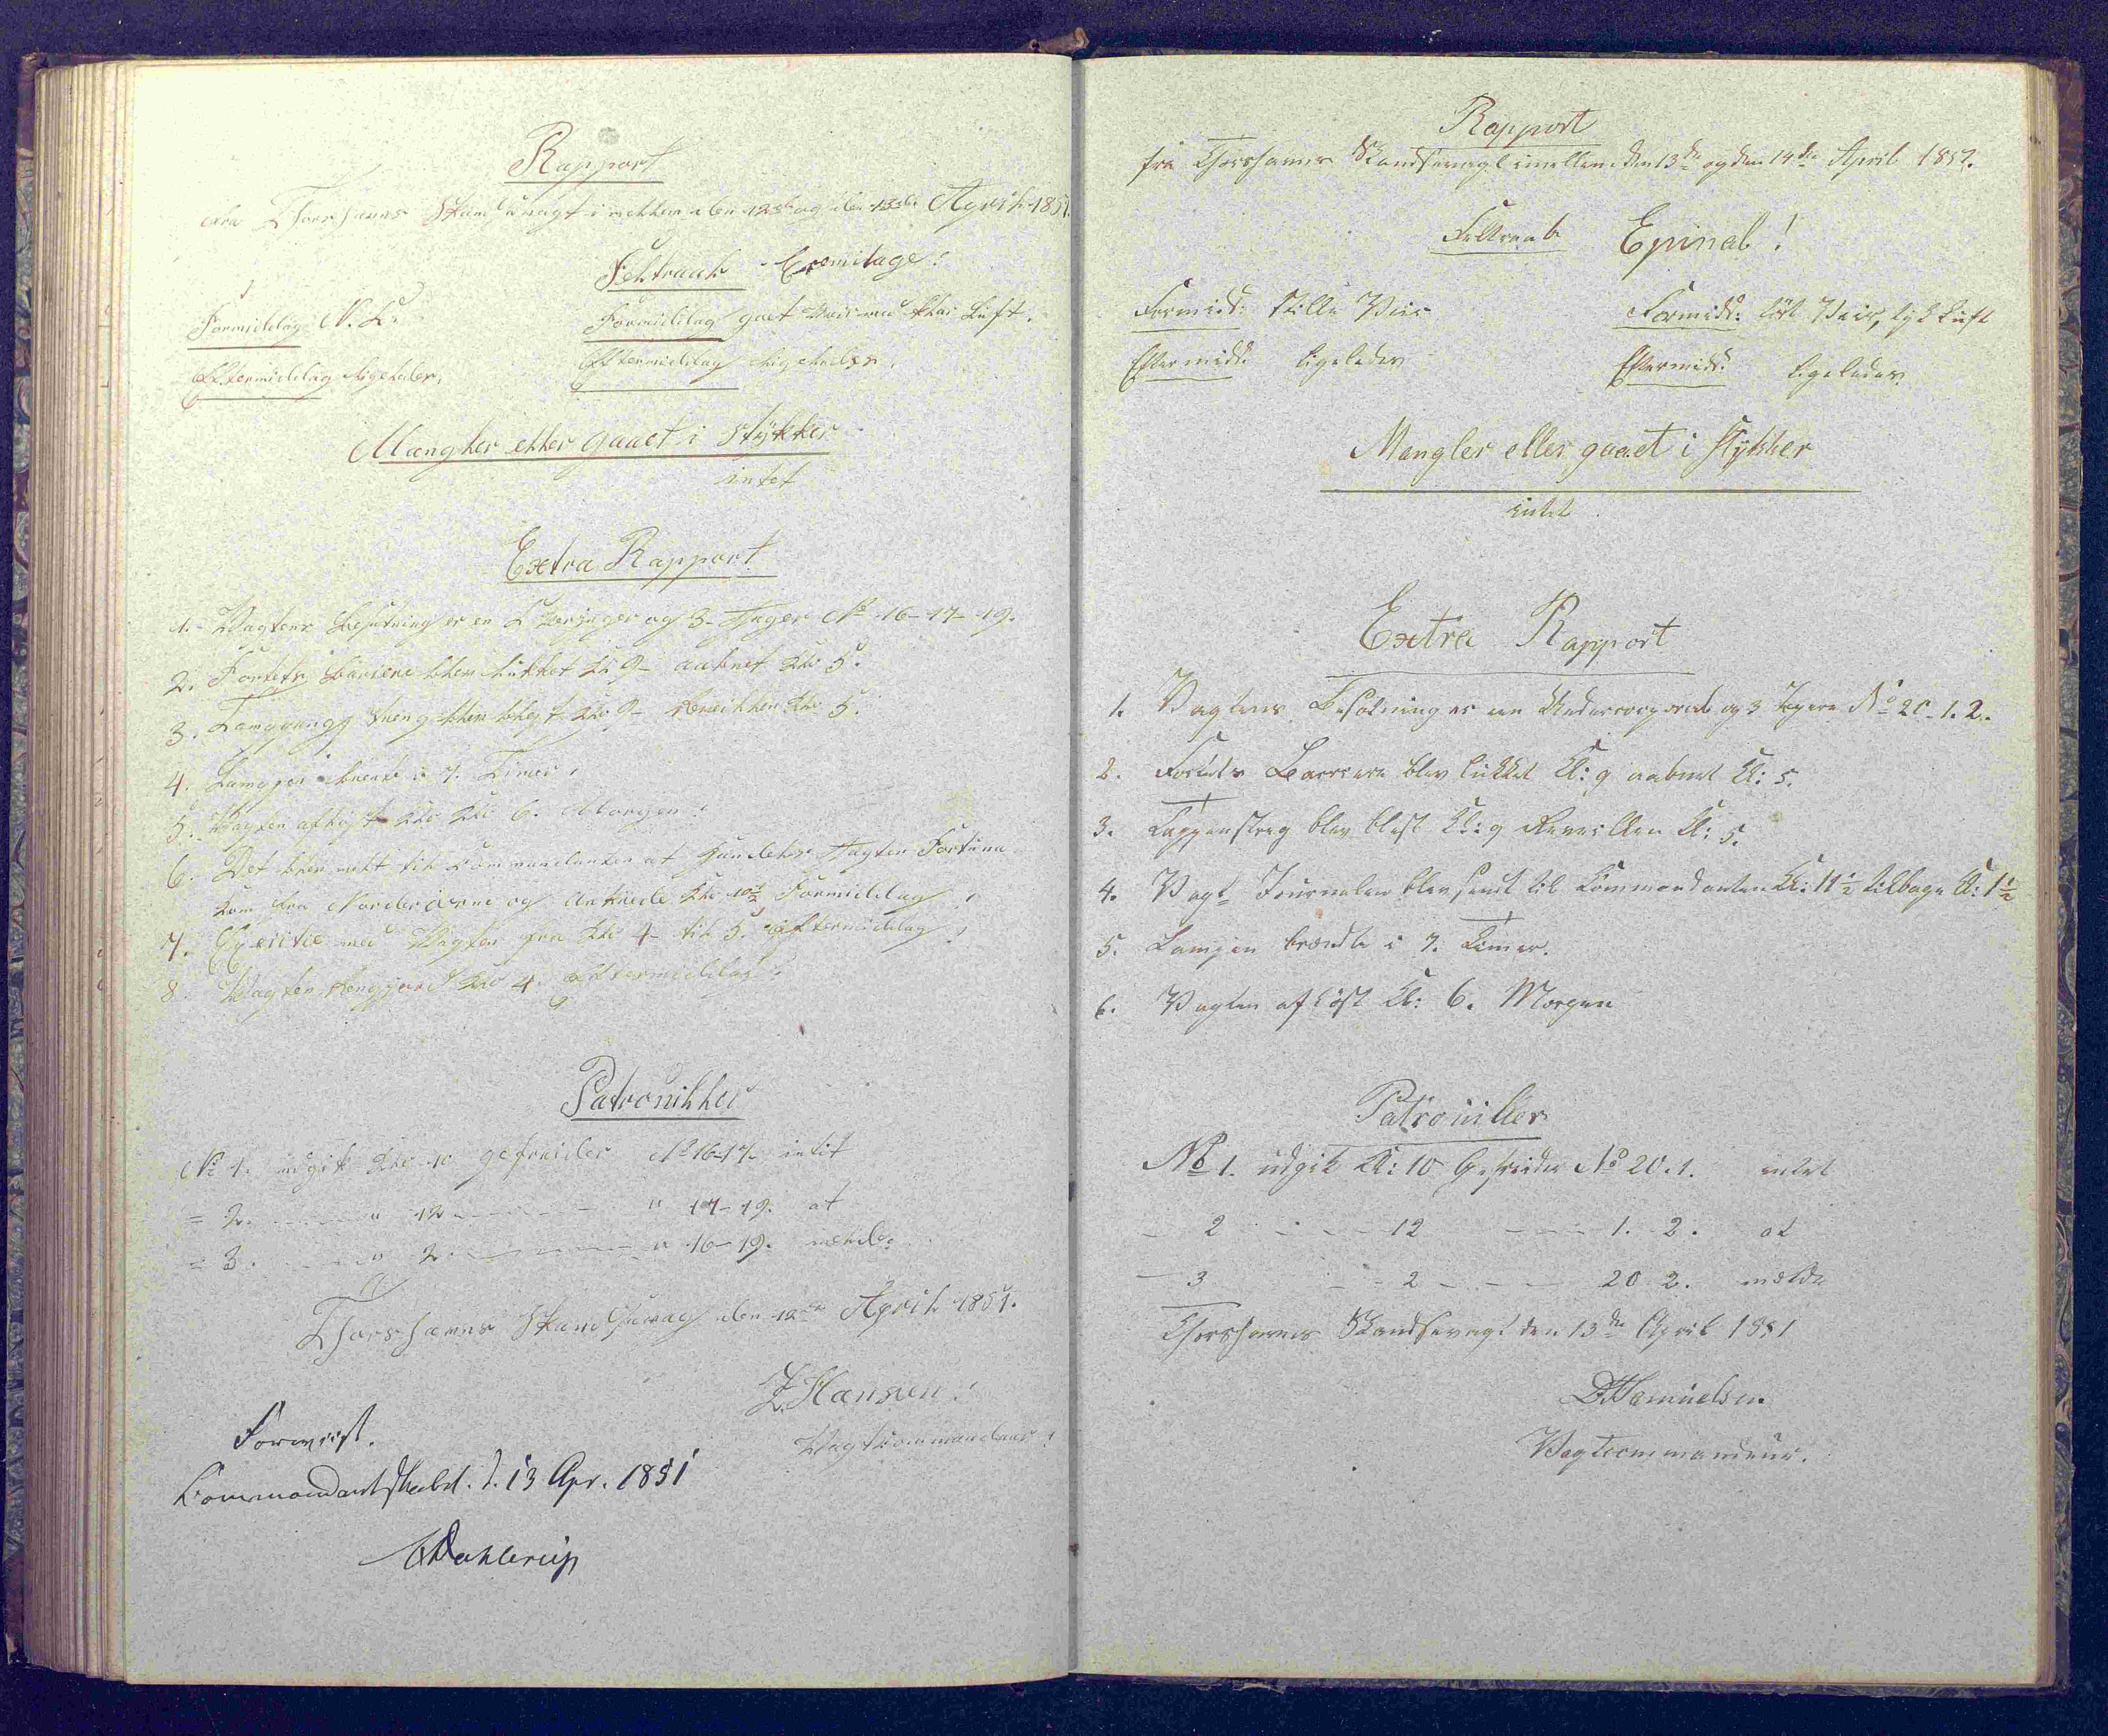 Rapport
fra Thorshavns Skandsevagt imellem den 12te og den 13de April 1851.
Feltraab Eremitage!
Formiddag N. K. Formiddag goet Veir med klar Luft.
Eftermiddag ligeledes, Eftermiddag ligeledes.
Mangler eller gaaet i Stykker
intet
Extra Rapport
1. Vagtens Besætning er en Underjæger og 3 Jæger No 16-17-19.
2. Fortets Bariere blev lukket Kl 9 aabnet Kl 5.
3. Tampgangs streng blev blæst Kl 9 Reveillen Kl 5.
4. Lampen brente i 7. Timer,
5. Vagten afløst Kl 6. Morgen!
6. Det blev melt til Commandanten at Handels Jagten Fortuna
kom fra Norderøerne og Ankrede Kl 10½ Formiddag!
7. Exersitie med Vagten fra Kl 4 til 5. Eftermiddag!
8. Vagten Rengjord Kl 4. Eftermiddag!
Patrouiller
No 1. udgik Kl 10 gefreider No 16-17. intet
= 2. " 12 " 17-19. at
= 3. " 2 " 16-19. melde
Thorshavns Skandsevag den 12te April 1851.
Z. Hansen!
Vagtcommandeur!
Foreviist.
Commandantskabet. d. 13 Apr. 1851
Dahlerup
Rapport
fra Thorshavns Skandsevagt imellem den 13de og den 14de April 1851.
Feltraab Epinal!
Formidd: stille Veir Formidd: löst Veir, tyk Luft
Eftermidd: ligeledes Eftermidd: ligeledes
Mangler eller gaaet i Stykker
intet
Extra Rapport
1. Vagtens Besætning er een Undercorporal og 3 Jægere No 20. 1. 2.
2. Fortets Barriere blev lukket Kl: 9 aabnet Kl: 5.
3. Tappenstreg blev blæst Kl: 9 Reveillen Kl: 5.
4. Vagt Journalen blev sendt til Commandanten Kl: 11½ tilbage Kl: 1½
5. Lampen brændte i 7. Timer.
6. Vagten aflöst Kl: 6. Morgen
Patrouiller
No 1. udgik Kl: 10 Gefreider No 20. 1. intet
– 2 – – – 12 – – – 1. 2. at
– 3 – – 2 – – – 20 2. melde
Thorshavns Skandsevagt den 13de April 1851
D. Samuelsen
Vagtcommandeur.